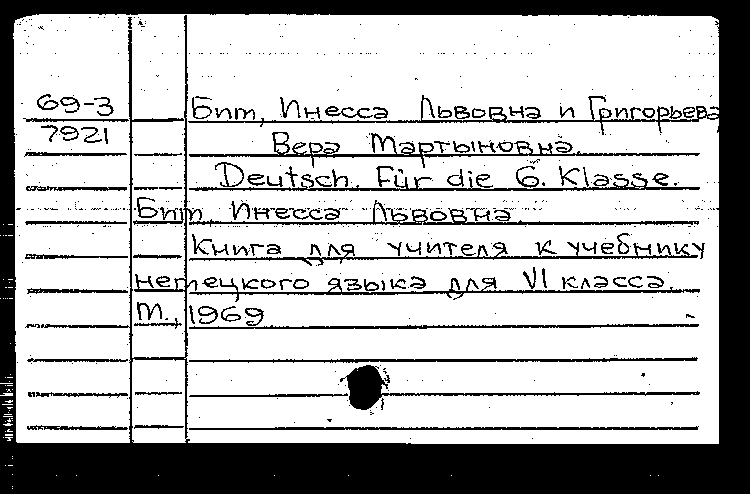 69-3 Бим, Инесса Львовна и Григорьева
7921 Вера Мартыновна.
Deutsch. Für die 6. Klasse.
Бим, Инесса Львовна.
Книга для учителя к учебнику
немецкого языка для VI класса.
М., 1969